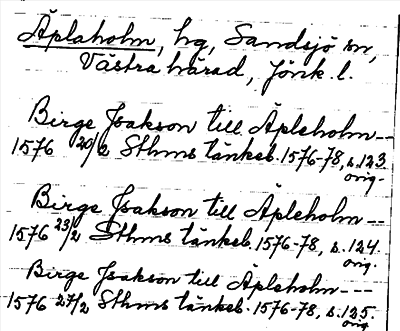 Äplaholm, hg, Sandsjö sn,
Västra härad, Jönk. l.
Birge Joakson till Äpleholm --
1576 20/2 Sthms tänkeb. 1576-78, s. 123
orig.
Birge Joakson till Äpleholm --
1576 23/2 Sthms tänkeb. 1576-78, s. 124.
orig.
Birge Joakson till Äpleholm ---
1576 27/2 Sthms tänkeb. 1576-78, s. 125.
orig.